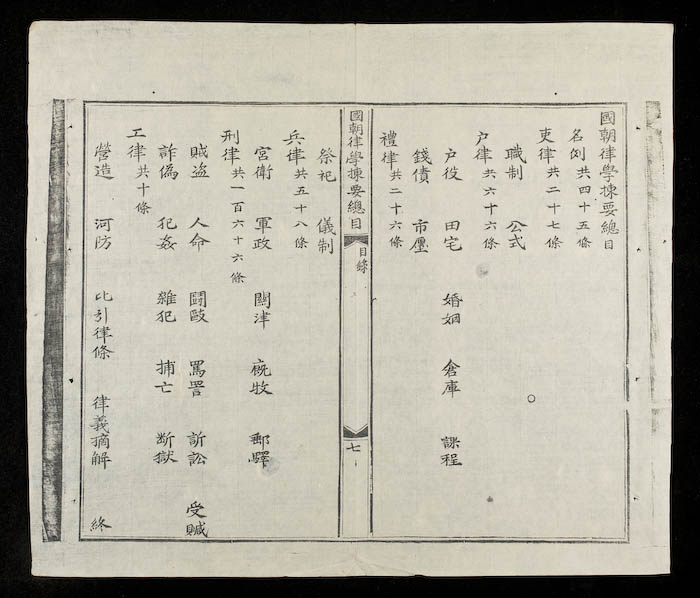 國朝律學揀要總目
名例 共四十五條
吏律 共二十七條
職制 公式
户律 共六十六條
户役 田宅 婚姻 倉庫 課程
錢債 市廛
禮律 共二十六條
國朝律學揀要總目 目錄 七
祭祀 儀制
兵律 共五十八條
宮衛 軍政 關津 廐牧 郵驛
刑律 共一百六十六條
賊盗 人命 鬪毆 罵詈 訴訟 受贓
詐偽 犯姦 雜犯 捕亡 断獄
工律 共十條
營造 河防 比引律條 律義摘解 終